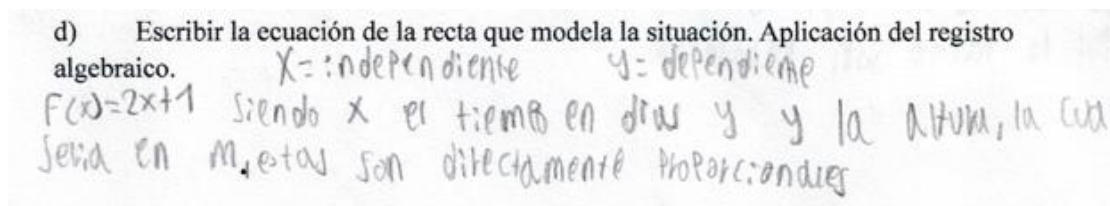 d) Escribir la ecuación de la recta que modela la situación. Aplicación del registro
algebraico. X=independiente y=dependiente
F(x)=2x+1 Siendo x el tiempo en días y y la altura, la cual
seria en m, estas son directamente proporcionales